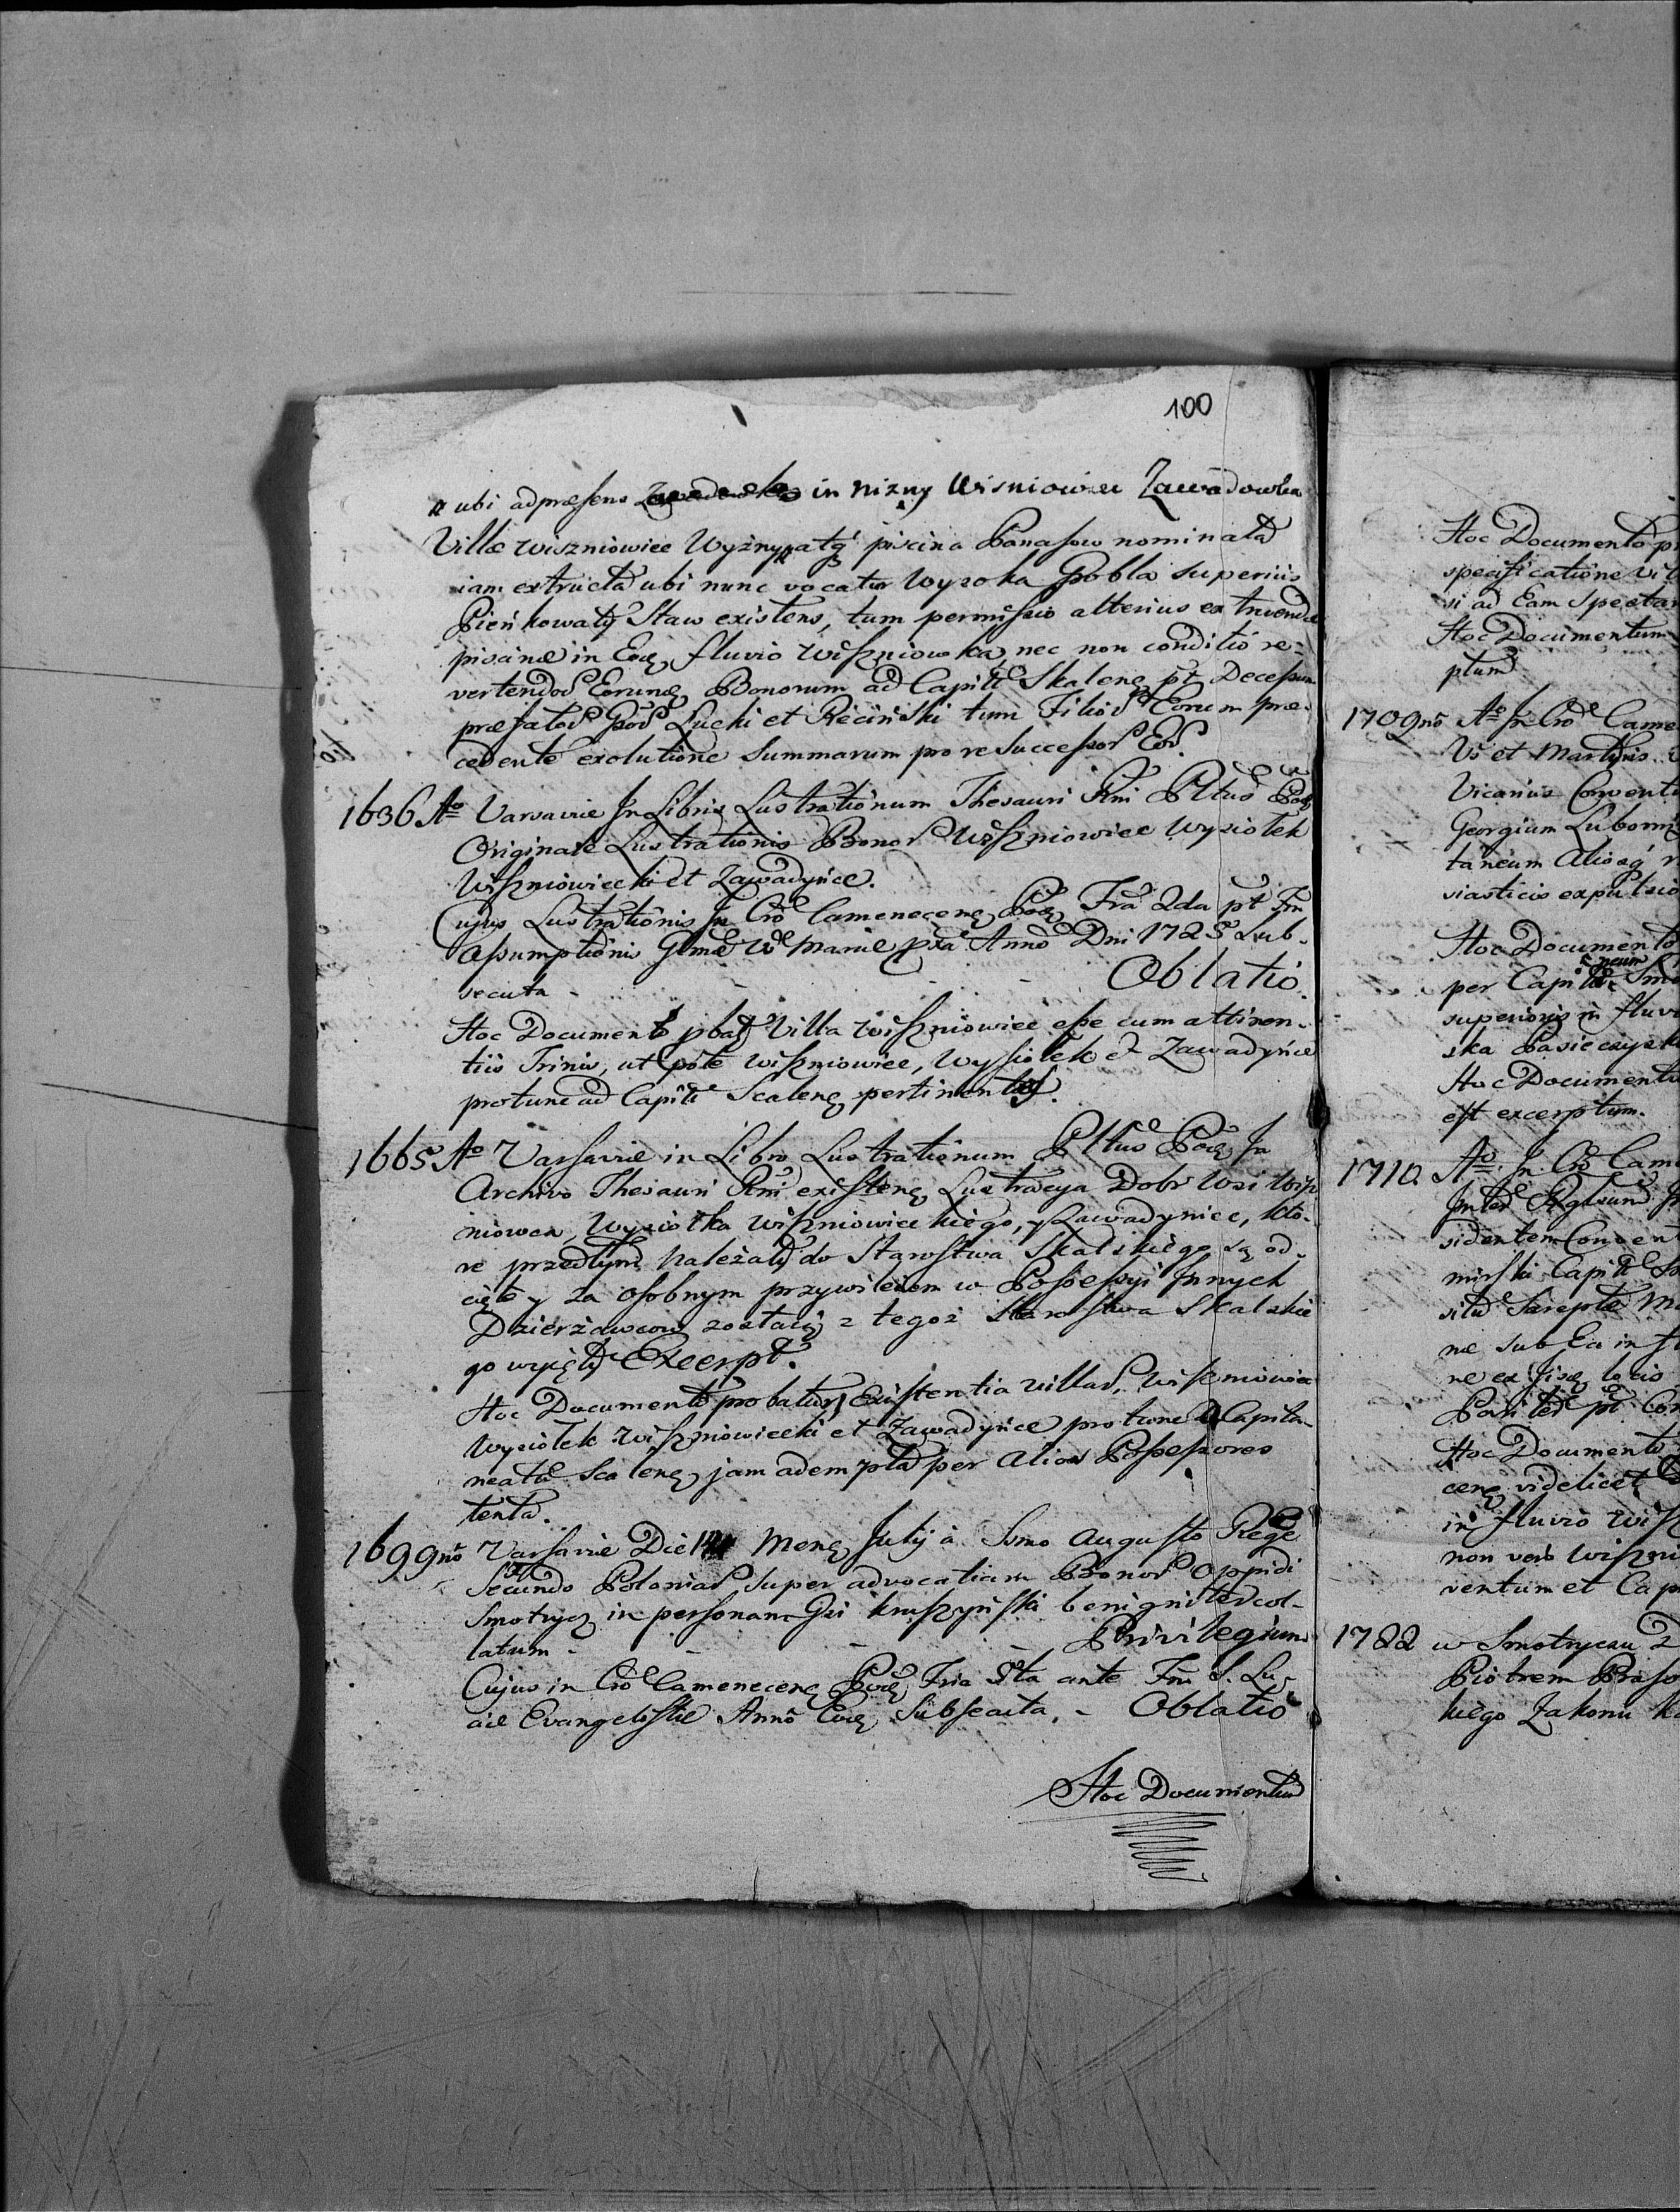 100
ubi ad præsens in niżny Wiszniowiec Zawadowka
Villæ Wiszniowiec Wyżny atq piscina Panasow nominata
iam extructa ubi nunc vocatur Wysoka Grobla superius
Pieńkowaty Staw existens, tum permissio alterius extruendæ
piscinæ in Eoq fluvio Wiszniowka, nec non conditio re-
vertendos Eorunq Bonorum ad Capitt Skalenę pt Decessum
præfatos Gros Łucki et Reciński tum Filios Eorum præ-
cedente exolutione Summarum pro re Successor Eor.
1636 Ao Varsaviæ In Libris Lustrationum Thesauri Rni Pltus Podę
Originale Lustrationis Bonor Wiszniowiec Wysiołek
Wiszniowiecki et Zawadyńce.
Cujus Lustrationis In Cro Camenecenę Podę Fra 2da pt Fm
Assumptionis Glmæ V Mariæ pxa Anno Dni 1725 Sub-
secuta - - - Oblatio.
Hoc Documento pbat Villa Wiszniowiec esse cum attinen-
tiis Trinis, ut pote Wiszniowiec, Wysiołek et Zawadyńce
pro tunc ad Capitt Scalenę pertinentes.
1665 Ao Varsaviæ in Libro Lustrationum Pltus Podę In
Archivo Thesauri Rni existenę Lustracya Dobr Wsi Wisz
niowca, Wysiołka Wiszniowieckiego, y Zawadyniec, kto-
re przedtym należały do Starostwa Skalskiego są od-
cięte y za osobnym przywileiem w Possessyi Innych
Dzierżawcow zostaią z tegoż Starostwa Skalskie
go wyięty Excerpt.
Hoc Documento probatur Existentia villar, Wiszniowiec
Wysiołek Wiszniowiecki et Zawadyńce pro tunc a Capita-
neatu Scalenę jam adempta per Alios Possessores
tenta.
1699no Varsaviæ Die Menę Julij à Ssmo Augusto Rege
Secundo Poloniar super advocatiam Bonor Oppidi
Smotrycz in personam Gsi Kruszyński benigniter col-
latum - - - Privilegium
Cujus in Cro Camenecenę Podę Fria 5ta ante Fm S. Lu-
cæ Evangelistæ Anno Eoę Subsecuta. - Oblatio
Hoc Documentum
Hoc Documento p
specificatione vil
si ad Eam Specta
Hoc Documentum
ptum
1709no Ao In Cro Came
Vs et Martyris
Vicarius Conventi
Georgium Lubomi
taneum Aliosq
siasticis expulsio
Hoc Documento
per Capitt Smo
superioris in fluv
ska Pasieczysk
Hoc Documento
est excerptum.
1710. Ao In Cro Cam
Inter Rglsum
sidentem Conven
mirski Capitt Sm
situ Sarepta
næ sub Ea in
ne ex fisq locio
Pariter pt Con
Hoc Documento
cenę videlicet
in fluvio Wisz
non vero Wiszni
ventum et Cap
1722 w Smotryczu
Piotrem Praso
kiego Zakonu